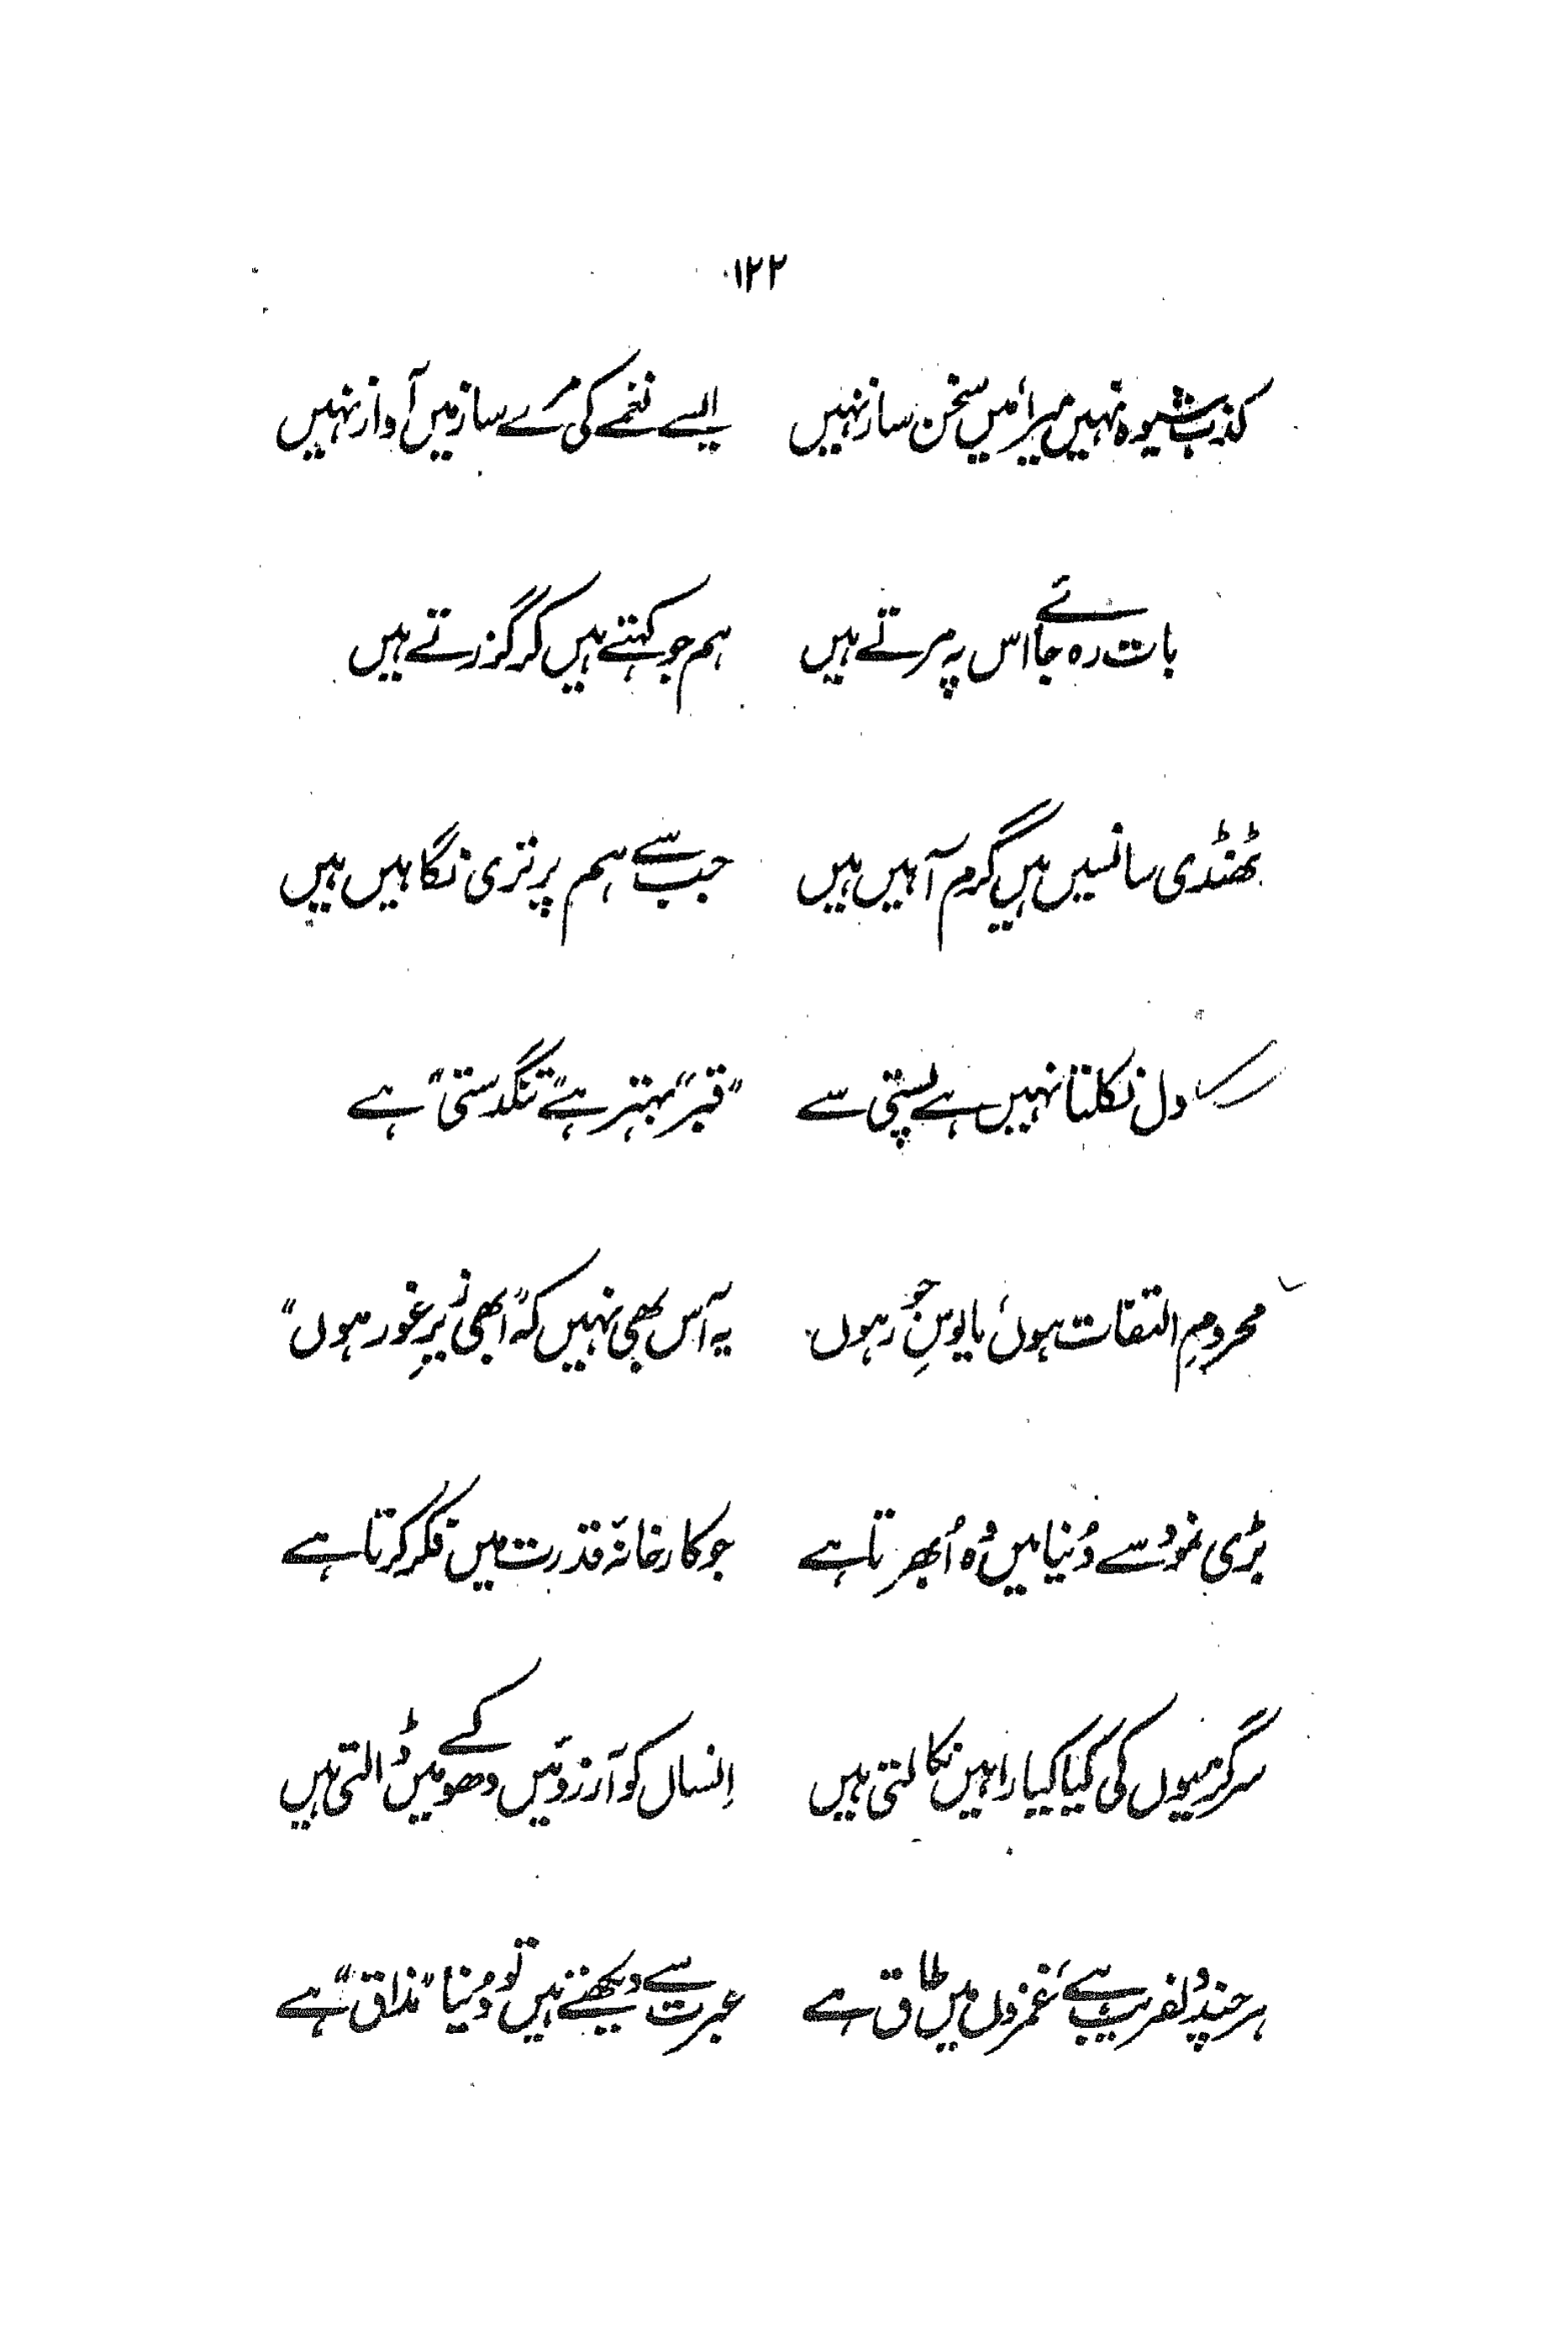 ۱۲۲
کذب شیوہ نہیں میرا، میں سخن ساز نہیں ایسے نغمے کی مرے ساز میں آواز نہیں
بات رہ جائے اس پہ مرتے ہیں ہم جو کہتے ہیں کر گزرتے ہیں
ٹھنڈی سانسیں ہیں گرم آہیں ہیں جب سے ہم پر تری نگاہیں ہیں
دل نکلتا نہیں ہے پستی سے "قبر" بہتر ہے "تنگدستی" ہے
محرومِ التفات ہوں، مایوسِ جور ہوں یہ آس بھی نہیں کہ "ابھی زیرِ غور ہوں"
بڑی نمود سے دُنیا میں وُہ اُبھرتا ہے جو کارخانۂ قدرت میں فکر کرتا ہے
سرگرمیوں کی کیا کیا راہیں نکالتی ہیں اِنساں کو آرزوئیں دھوکے میں ڈالتی ہیں
ہر چند دلفریب ہے، غمزوں میں طاق ہے عبرت سے دیکھتے ہیں تو دُنیا "مذاق" ہے